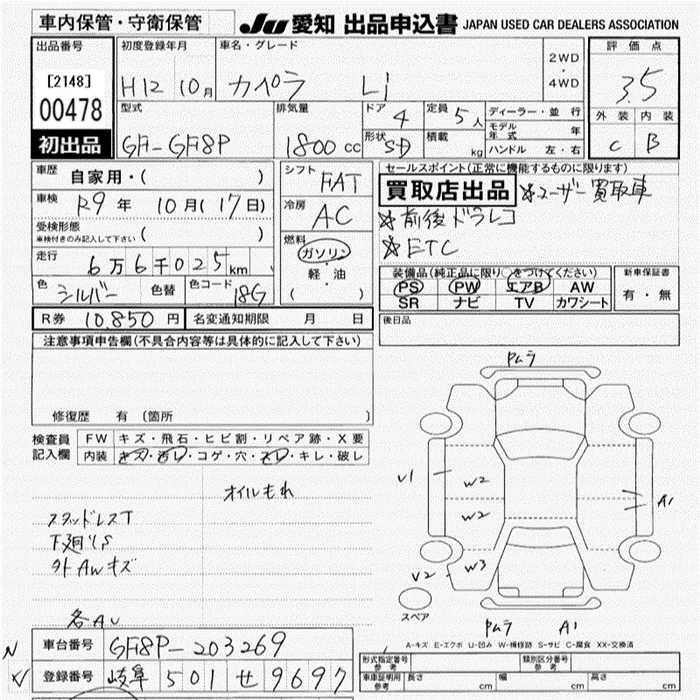 車内保管・守衛保管
JU 愛知 出品申込書 JAPAN USED CAR DEALERS ASSOCIATION
出品番号
[2148]
00478
初出品
初度登録年月
H12 10月
車名・グレード
カペラ Li
2WD
・
4WD
評価点
3.5
外装 内装
C B
型式
GF-GF8P
排気量
1800 cc
ドア
4
定員
5人
形状
SD
積載
kg
ディーラー・並行
モデル年式 年
ハンドル 左・右
車歴
自家用・( )
車検
R9年 10月(17日)
受検形態
車検付きのみ記入して下さい ( )
走行
6万6千025km
色
シルバー
色替
色コード
18G
シフト
FAT
冷房
AC
燃料
ガソリン
・
軽・油
( )
セールスポイント(正常に機能するものに限ります)
買取店出品 ☆ユーザー買取車
☆前後ドラレコ
☆ETC
装備品(純正品に限り○をつけてください)
PS PW エアB AW
SR ナビ TV カワシート
新車保証書
有・無
R券 10,850円 名変通知期限 月 日
後日品
注意事項申告欄(不具合内容等は具体的に記入して下さい)
修復歴 有 〔箇所 〕
検査員記入欄
FW キズ・飛石・ヒビ割・リペア跡・X要
内装 キズ・汚レ・コゲ・穴・スレ・キレ・破レ
オイルもれ
スタッドレスT
下廻りS
外AWキズ
各AU
Pムラ
V1
W2
W2
A1
V2
W3
スペア
Pムラ A1
A-キズ E-エクボ U-凹み W-補修跡 S-サビ C-腐食 XX-交換済
車台番号 GF8P-203269
登録番号 岐阜 501 せ 9697
形式指定番号 参考
類別区分番号 参考
車庫証明用 参考
長さ cm 幅 cm 高さ cm